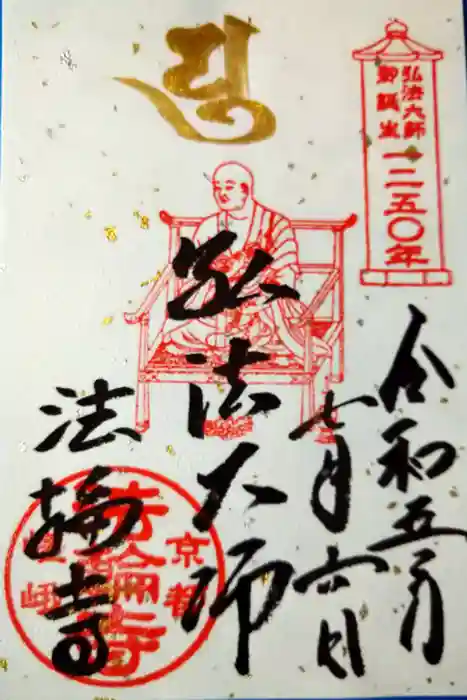 弘法大師
御誕生
一二五〇年
令和五年
七月六日
弘法大師
法輪寺
京都
法輪寺
嵯峨